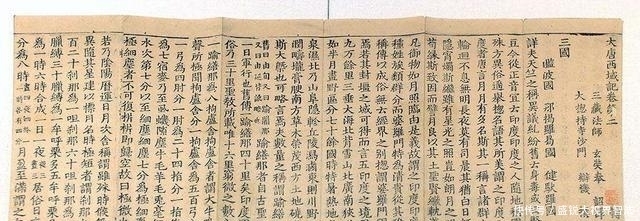 大唐西域記卷第二
三藏法師 玄奘奉 詔
大總持寺沙門 辯機
三國
濫波國 那揭羅曷國 健馱邏
詳夫天竺之稱異議糾紛舊云身毒
豆今從正音宜云印度印度之人隨地
殊方異俗遙舉總名語其所美謂之印
度者唐言月月有多名斯其一稱言諸
輪迴不息無明長夜莫有司晨其猶白
隱宵燭斯繼雖有星光之照豈如朗月之
苟緣斯致因而譬月良以其土聖賢繼
凡御物如月照臨由是義故謂之印度
種姓族類群分而婆羅門特為清貴從其
稱傳以成俗無云經界之別總謂婆羅門
焉若其封疆之域可得而言五印度之境
九萬餘里三垂大海北背雪山北廣南狹
如半月畫野區分七十餘國時特暑熱地
泉濕北乃山阜隱軫丘陵舄鹵東則川野
潤疇壟膏腴南方草木榮茂西方土地磽
斯大概也可略言焉夫數量之稱謂踰繕
踰繕那者自古聖
一日軍行也舊傳一踰繕那四十里矣印度
俗乃三十里聖教所載惟十六里窮微之數
踰繕那為八拘盧舍拘盧舍者謂大牛
聲所極聞稱拘盧舍分一拘盧舍為五百弓
一弓為四肘分一肘為二十四指分一指節
為七宿麥乃至虱蟣隙塵牛毛羊毛兔毫
水次第七分以至細塵細塵七分為極細
極細塵者不可復析析即歸空故曰極微
若乃陰陽曆運日月次舍稱謂雖殊時候
異隨其星建以標月名時極短者謂剎那
百二十剎那為一呾剎那六十呾剎那為一
臘縛三十臘縛為一牟呼栗多五牟呼栗
為一時六時合成一日一夜
分為八時
月盈至滿謂之